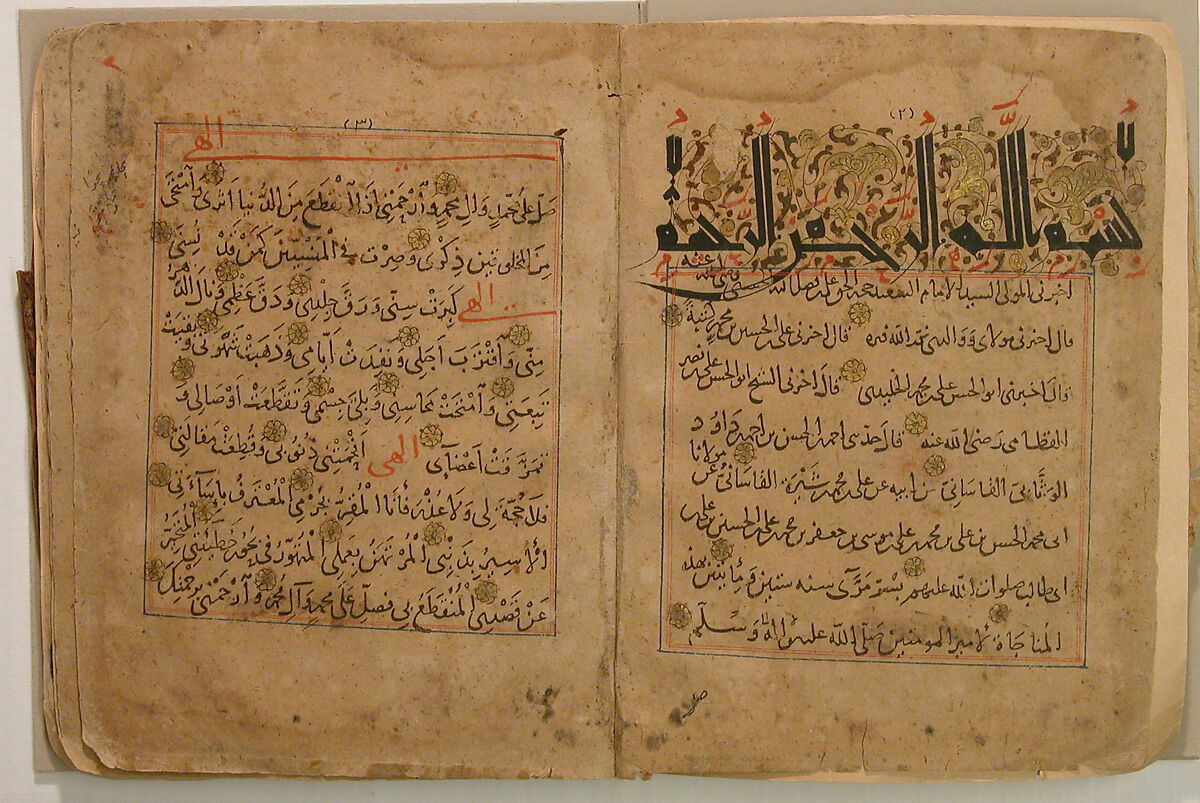 (٢)
بسم الله الرحمن الرحيم
اخبرني المولى السيد الامام السعيد
قال اخبرني مولاي ووالدي قال اخبرني علي بن الحسين بن محمد
قال اخبرني ابو الحسن علي بن محمد الخليدي قال اخبرني الشيخ ابو الحسن علي بن نصر
القطامي رضي الله عنه قال حدثني احمد بن الحسن بن احمد بن داود
الوثابي القاساني عن ابيه عن علي بن محمد بن شيرة القاساني عن مولانا
ابي محمد الحسن بن علي بن محمد بن علي بن موسى بن جعفر بن محمد بن علي بن الحسين بن علي بن
ابي طالب صلوات الله عليهم بسر من رأى سنة ستين ومائتين بهذه
المناجاة لامير المومنين صلى الله عليه واله وسلم
(٣)
الهي
صل على محمد وال محمد وارحمني اذا انقطع من الدنيا اثري وامتحى
من المخلوقين ذكري وصرت في المنسيين كمن قد نسي
الهي كبرت سني ورق جلدي ودق عظمي ونال الدهر
مني واقترب اجلي ونفدت ايامي وذهبت شهوتي وبقيت
تبعتي وامتحت محاسني وبلي جسمي وتقطعت اوصالي و
تفرقت اعضاي الهي افحمتني ذنوبي وقطعت مقالتي
فلا حجة لي ولا عذر فانا المقر بجرمي المعترف باساءتي
الاسير بذنبي المرتهن بعملي المتهور في خطيئتي المتحير
عن قصدي المنقطع بي فصل على محمد وآل محمد وارحمني برحمتك